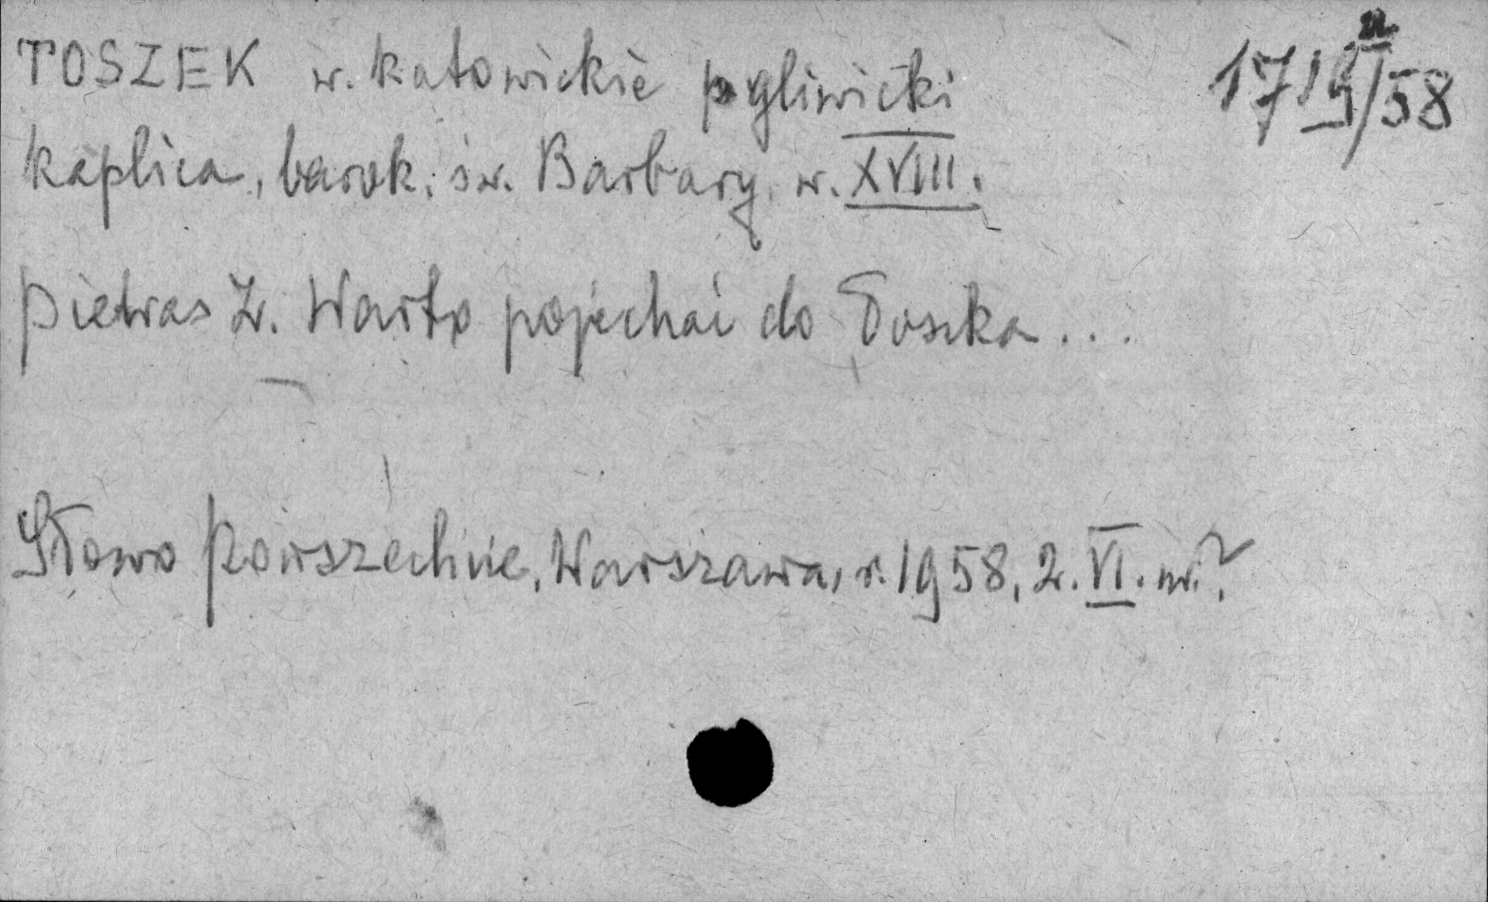 TOSZEK w. katowickie p gliwicki
kaplica, barok. św. Barbary. w. XVIII.
Pietras Z. Warto pojechać do Toszka...
Słowo Powszechne, Warszawa, r. 1958, 2. VI. nr. ?